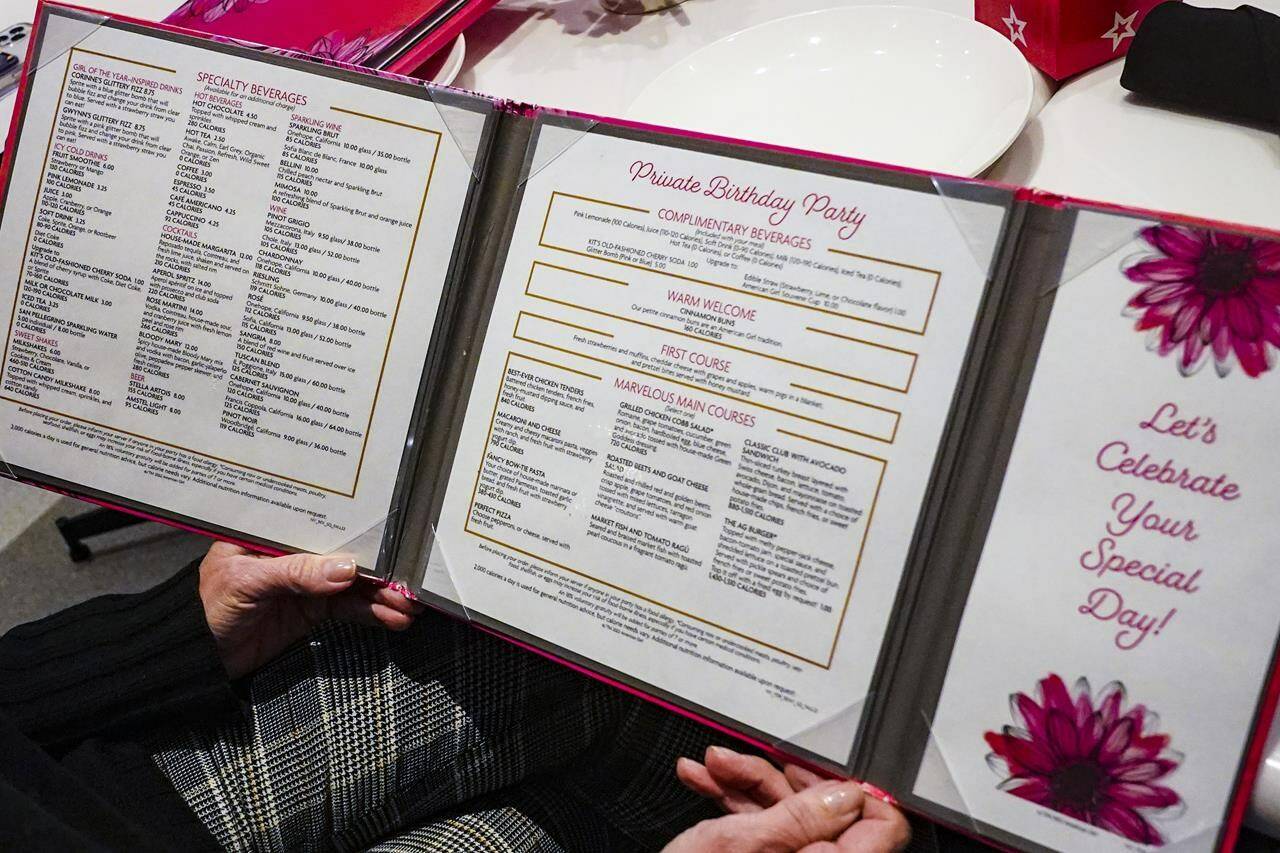 GIRL OF THE YEAR–INSPIRED DRINKS
CORINNE'S GLITTERY FIZZ 8.75
Sprite with a blue glitter bomb that will
bubble fizz and change your drink from clear
to blue. Served with a strawberry straw you
can eat!
GWYNN'S GLITTERY FIZZ 8.75
Sprite with a pink glitter bomb that will
bubble fizz and change your drink from clear
to pink. Served with a strawberry straw you
can eat!
ICY COLD DRINKS
FRUIT SMOOTHIE 6.00
Strawberry or Mango
PINK LEMONADE 3.25
100 CALORIES
JUICE 3.00
Apple, Cranberry, or Orange
110-120 CALORIES
SOFT DRINK 3.25
Coke, Sprite, Orange, or Rootbeer
80-90 CALORIES
Diet Coke
0 CALORIES
Upgrade to:
KIT'S OLD-FASHIONED CHERRY SODA 1.00
A blend of cherry syrup with Coke, Diet Coke,
or Sprite
70-160 CALORIES
MILK OR CHOCOLATE MILK 3.00
120-190 CALORIES
ICED TEA 3.25
0 CALORIES
SAN PELLEGRINO SPARKLING WATER
5.00 individual / 8.00 bottle
0 CALORIES
SWEET SHAKES
MILKSHAKES 6.00
Strawberry, Chocolate, Vanilla, or
Cookies & Cream
460-510 CALORIES
COTTON CANDY MILKSHAKE 8.00
Topped with whipped cream, sprinkles, and
cotton candy
640 CALORIES
SPECIALTY BEVERAGES
(Available for an additional charge)
HOT BEVERAGES
HOT CHOCOLATE 4.50
Topped with whipped cream and
sprinkles
280 CALORIES
HOT TEA 2.50
Awake, Calm, Earl Grey, Organic
Chai, Passion, Refresh, Wild Sweet
Orange, or Zen
0 CALORIES
COFFEE 3.00
0 CALORIES
ESPRESSO 3.50
45 CALORIES
CAFÉ AMERICANO 4.25
45 CALORIES
CAPPUCCINO 4.25
92 CALORIES
COCKTAILS
HOUSE-MADE MARGARITA 12.00
Reposado tequila, Cointreau, and
fresh lime juice, shaken and served on
the rocks, with salted rim
210 CALORIES
APEROL SPRITZ 14.00
Aperol apéritif on ice and topped
with prosecco and club soda
220 CALORIES
ROSE MARTINI 14.00
Vodka, Cointreau, house-made sour,
and cranberry juice with fresh lemon
peel and rose rim
266 CALORIES
BLOODY MARY 12.00
Spicy house-made Bloody Mary mix
and vodka with bacon, garlic/jalapeño
olive, peppadew pepper skewer, and
fresh celery
280 CALORIES
BEER
STELLA ARTOIS 8.00
155 CALORIES
AMSTEL LIGHT 8.00
95 CALORIES
SPARKLING WINE
SPARKLING BRUT
Onehope, California 10.00 glass / 35.00 bottle
85 CALORIES
Sofia Blanc de Blanc, France 10.00 glass
85 CALORIES
BELLINI 10.00
Chilled peach nectar and Sparkling Brut
115 CALORIES
MIMOSA 10.00
A refreshing blend of Sparkling Brut and orange juice
100 CALORIES
WINE
PINOT GRIGIO
Mezzacorona, Italy 9.50 glass / 38.00 bottle
105 CALORIES
Chole, Italy 13.00 glass / 52.00 bottle
105 CALORIES
CHARDONNAY
Onehope, California 10.00 glass / 40.00 bottle
118 CALORIES
RIESLING
Schmitt Söhne, Germany 10.00 glass / 40.00 bottle
ROSÉ
Onehope, California 9.50 glass / 38.00 bottle
Sofia, California 13.00 glass / 52.00 bottle
SANGRIA 8.00
A blend of red wine and fruit served over ice
150 CALORIES
TUSCAN BLEND
IL Poggione, Italy 15.00 glass / 60.00 bottle
125 CALORIES
CABERNET SAUVIGNON
Onehope, California 10.00 glass / 40.00 bottle
120 CALORIES
Francis Coppola, California 16.00 glass / 64.00 bottle
125 CALORIES
PINOT NOIR
Woodbridge, California 9.00 glass / 36.00 bottle
119 CALORIES
Before placing your order, please inform your server if anyone in your party has a food allergy. *Consuming raw or undercooked meats, poultry,
seafood, shellfish, or eggs may increase your risk of food-borne illness, especially if you have certain medical conditions.
An 18% voluntary gratuity will be added for parties of 7 or more.
2,000 calories a day is used for general nutrition advice, but calorie needs vary. Additional nutrition information available upon request.
Private Birthday Party
COMPLIMENTARY BEVERAGES
(Included with your meal)
Pink Lemonade (100 Calories), Juice (110-120 Calories), Soft Drink (0-90 Calories), Milk (120-190 Calories), Iced Tea (0 Calories),
Hot Tea (0 Calories), or Coffee (0 Calories)
Upgrade to:
KIT'S OLD-FASHIONED CHERRY SODA 1.00
Glitter Bomb (Pink or Blue) 5.00
Edible Straw (Strawberry, Lime, or Chocolate flavor) 1.00
American Girl Souvenir Cup 10.00
WARM WELCOME
CINNAMON BUNS
Our petite cinnamon buns are an American Girl tradition.
160 CALORIES
FIRST COURSE
Fresh strawberries and muffins, cheddar cheese with grapes and apples, warm pigs in a blanket,
and pretzel bites served with honey mustard
MARVELOUS MAIN COURSES
(Select one)
BEST-EVER CHICKEN TENDERS
Battered chicken tenders, french fries,
honey mustard dipping sauce, and
fresh fruit
840 CALORIES
MACARONI AND CHEESE
Creamy and cheesy macaroni pasta, veggies
with ranch, and fresh fruit with strawberry
yogurt dip
790 CALORIES
FANCY BOW-TIE PASTA
Your choice of house-made marinara or
butter, grated Parmesan, toasted garlic
bread, and fresh fruit with strawberry
yogurt dip
380-430 CALORIES
PERFECT PIZZA
Choose pepperoni, or cheese, served with
fresh fruit
GRILLED CHICKEN COBB SALAD*
Romaine, grape tomatoes, cucumber, green
onion, bacon, hardboiled egg, blue cheese,
and avocado tossed with house-made Green
Goddess dressing
720 CALORIES
ROASTED BEETS AND GOAT CHEESE
SALAD
Roasted and chilled red and golden beets,
crisp apple, grape tomatoes, and red onion
tossed with mixed lettuces, tarragon
vinaigrette, and served with warm goat
cheese "croutons"
MARKET FISH AND TOMATO RAGÙ
Seared and braised market fish with toasted
pearl couscous in a fragrant tomato ragù
CLASSIC CLUB WITH AVOCADO
SANDWICH
Thin-sliced turkey breast layered with
Swiss cheese, bacon, lettuce, tomato,
avocado, Dijon, and mayonnaise on toasted
whole-grain bread. Served with a choice of
house-made chips, french fries, or sweet
potato fries.
880-1,510 CALORIES
THE AG BURGER*
Topped with melty pepper-jack cheese,
bacon-tomato jam, special sauce, and
shredded lettuce on a toasted pretzel bun.
Served with pickle spears and choice of
french fries or sweet potato fries.
Top it off with a fried egg by request! 1.00
1,430-1,510 CALORIES
Before placing your order, please inform your server if anyone in your party has a food allergy. *Consuming raw or undercooked meats, poultry, sea-
food, shellfish, or eggs may increase your risk of food-borne illness, especially if you have certain medical conditions.
An 18% voluntary gratuity will be added for parties of 7 or more
2,000 calories a day is used for general nutrition advice, but calorie needs vary. Additional nutrition information available upon request.
Let's
Celebrate
Your
Special
Day!